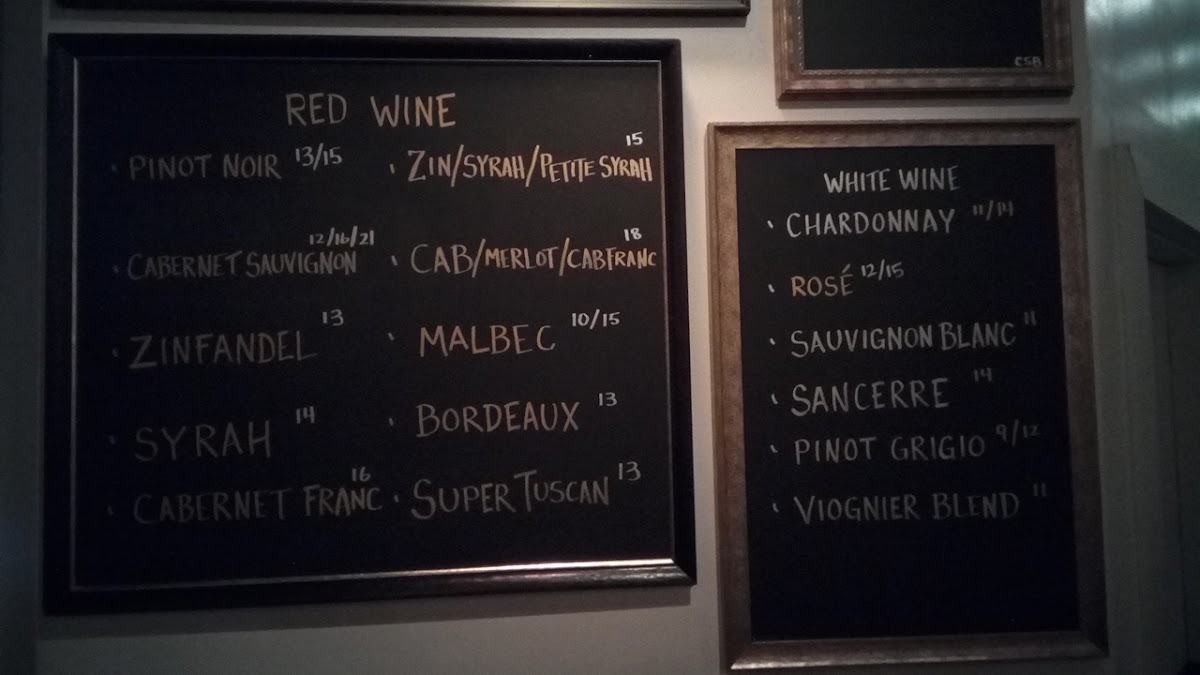 RED WINE
· PINOT NOIR 13/15
· CABERNET SAUVIGNON 12/16/21
· ZINFANDEL 13
· SYRAH 14
· CABERNET FRANC 16
· ZIN/SYRAH/PETITE SYRAH 15
· CAB/MERLOT/CAB FRANC 18
· MALBEC 10/15
· BORDEAUX 13
· SUPER TUSCAN 13
CSB
WHITE WINE
· CHARDONNAY 11/14
· ROSÉ 12/15
· SAUVIGNON BLANC 11
· SANCERRE 14
· PINOT GRIGIO 9/12
· VIOGNIER BLEND 11